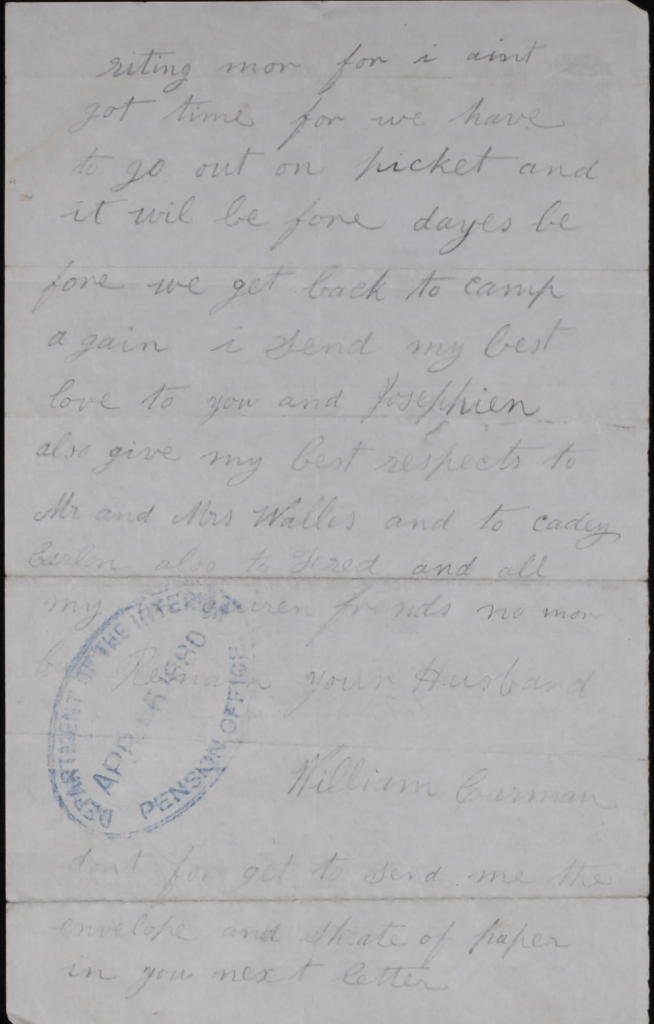 riting mor for i aint
got time for we have
to go out on picket and
it wil be fore dayes be
fore we get back to camp
again i send my best
love to you and Josephien
also give my best respects to
Mr and Mrs Wallis and to cadey
Carlon also to Fred and all
my frends no mor
Remain your Husband
William Carman
dont for get to send me the
envelope and sheate of paper
in you next letter
DEPARTMENT OF THE INTERIOR
APR 6 1880
PENSION OFFICE